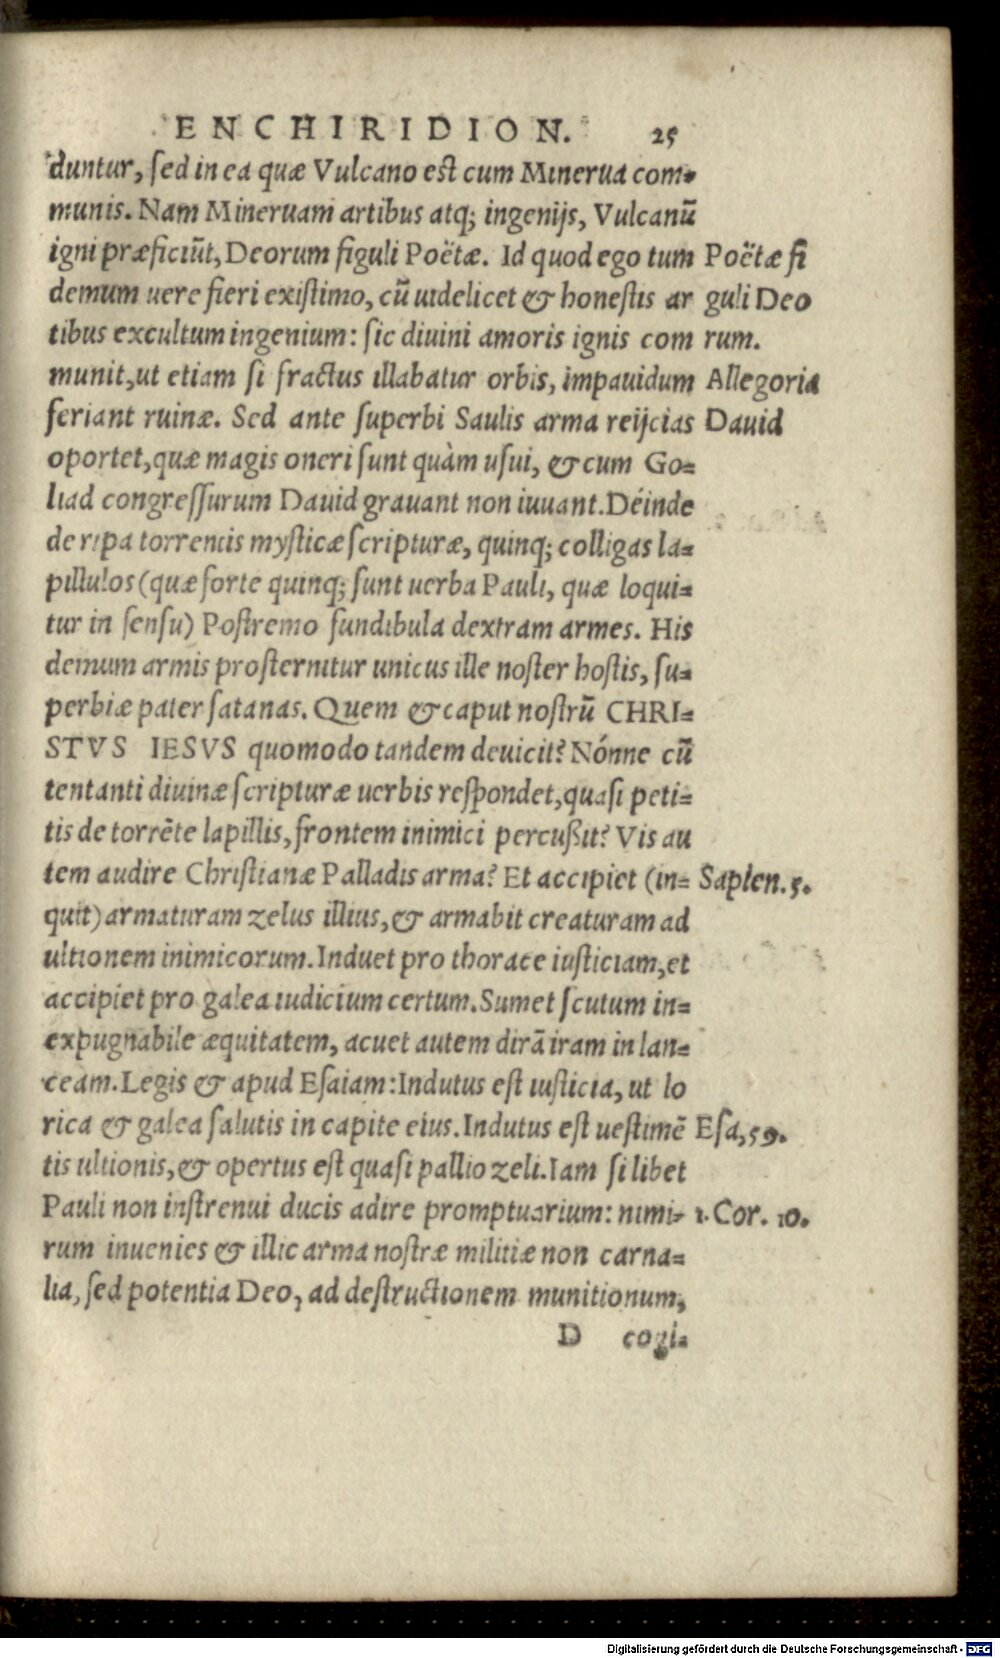 ENCHIRIDION. 25
duntur, sed in ea quæ Vulcano est cum Minerua com-
munis. Nam Mineruam artibus atq; ingenijs, Vulcanũ
igni præficiũt, Deorum figuli Poëtæ. Id quod ego tum
demum uere fieri existimo, cũ uidelicet & honestis ar
tibus excultum ingenium: sic diuini amoris ignis com
munit, ut etiam si fractus illabatur orbis, impauidum
feriant ruinæ. Sed ante superbi Saulis arma reijcias
oportet, quæ magis oneri sunt quàm usui, & cum Go-
liad congressurum Dauid grauant non iuuant. Déinde
de ripa torrentis mysticæ scripturæ, quinq; colligas la-
pillulos (quæ forte quinq; sunt uerba Pauli, quæ loqui-
tur in sensu) Postremo fundibula dextram armes. His
demum armis prosternitur unicus ille noster hostis, su-
perbiæ pater satanas. Quem & caput nostrũ CHRI-
STVS IESVS quomodo tandem deuicit? Nónne cũ
tentanti diuinæ scripturæ uerbis respondet, quasi peti-
tis de torrẽte lapillis, frontem inimici percußit? Vis au
tem audire Christianæ Palladis arma? Et accipiet (in-
quit) armaturam zelus illius, & armabit creaturam ad
ultionem inimicorum. Induet pro thorace iusticiam, et
accipiet pro galea iudicium certum. Sumet scutum in-
expugnabile æquitatem, acuet autem dirã iram in lan-
ceam. Legis & apud Esaiam: Indutus est iusticia, ut lo
rica & galea salutis in capite eius. Indutus est uestimẽ
tis ultionis, & opertus est quasi pallio zeli. Iam si libet
Pauli non instrenui ducis adire promptuarium: nimi-
rum inuenies & illic arma nostræ militiæ non carna-
lia, sed potentia Deo, ad destructionem munitionum,
D cogi-
Poëtæ fi
guli Deo
rum.
Allegoria
Dauid
Sapien. 5.
Esa, 59.
1. Cor. 10.
Digitalisierung gefördert durch die Deutsche Forschungsgemeinschaft - DFG